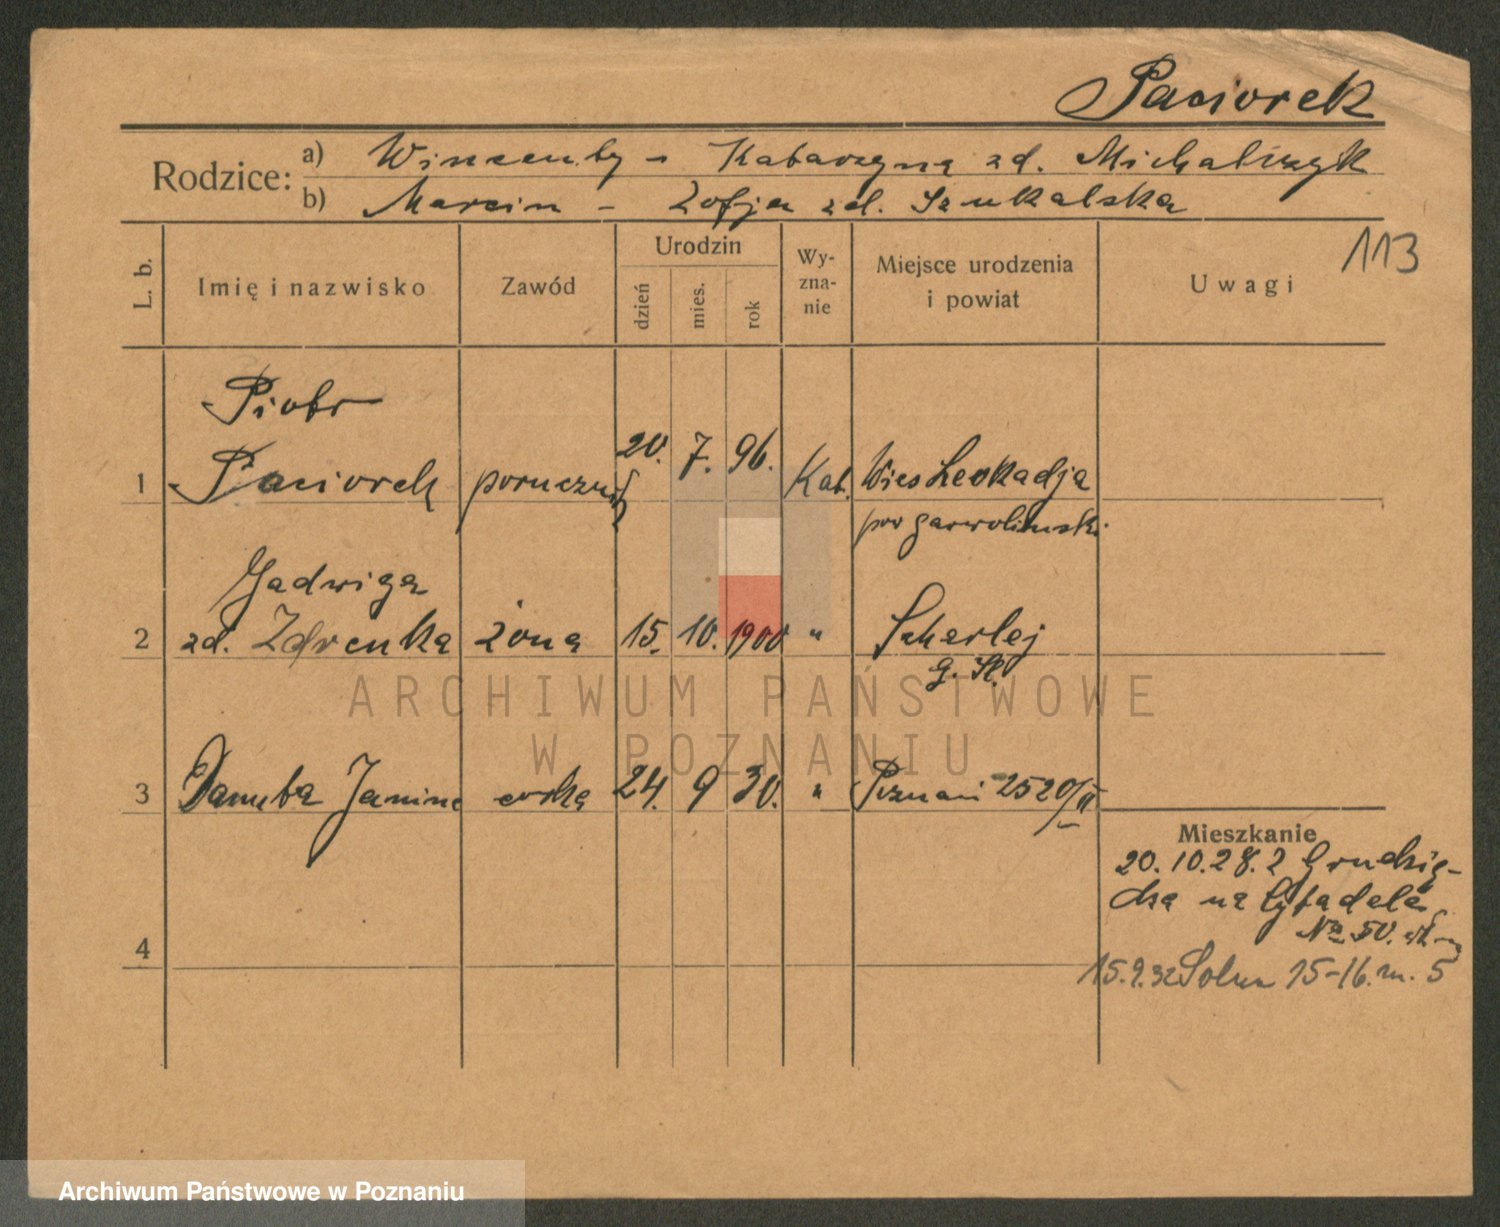 Paciorek
Rodzice: a) Wincenty - Katarzyna zd. Michalczyk
b) Marcin - Zofja zd. Szukalska
113
L. b.
Imię i nazwisko
Zawód
Urodzin
dzień
mies.
rok
Wy-
zna-
nie
Miejsce urodzenia
i powiat
Uwagi
Piotr
1 Paciorek porucznik 20. 7. 96. Kat. Wieś Leokadja
pow garwoliński
Jadwiga
2 zd. Zdrenka żona 15. 10. 1900 " Scharlej
G. Śl.
3 Danuta Janina córka 24. 9 30. " Poznań 2520/II
4
Mieszkanie
20.10.28. z Grudzią-
dza na Cytadelę
No 50.
15.9.32 Solna 15-16. m. 5
ARCHIWUM PAŃSTWOWE
W POZNANIU
Archiwum Państwowe w Poznaniu